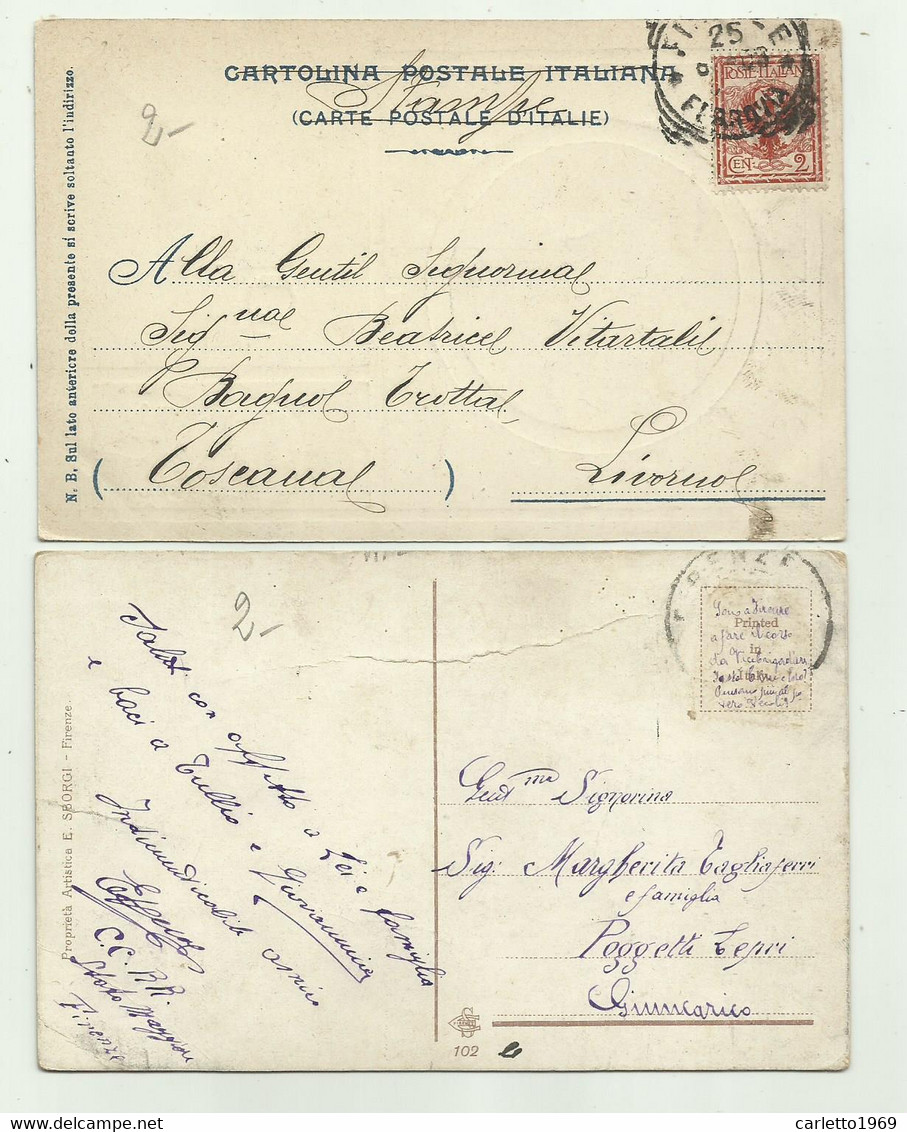 CARTOLINA POSTALE ITALIANA
Stampe
(CARTE POSTALE D'ITALIE)
2-
25
FERROVIA
POSTE ITALIANE
CEN. 2
N. B. Sul lato anteriore della presente si scrive soltanto l'indirizzo.
Alla Gentil Signorina
Sig na Beatrice Vitartali
Bagno Trotta
(Toscana) Livorno
2-
RENZE
Printed
in
Italy
a fare il corso
Saluti con affetto a Lei e famiglia
e baci a Tullio e Giovannina
Indimenticabile amico
C.C. R.R.
Stato Maggiore
Firenze
Proprietà Artistica E. SBORGI - Firenze.
Gent ma Signorina
Sig: Margherita Tagliaferri
e famiglia
Poggetti Lepri
Giuncarico
102
carletto1969